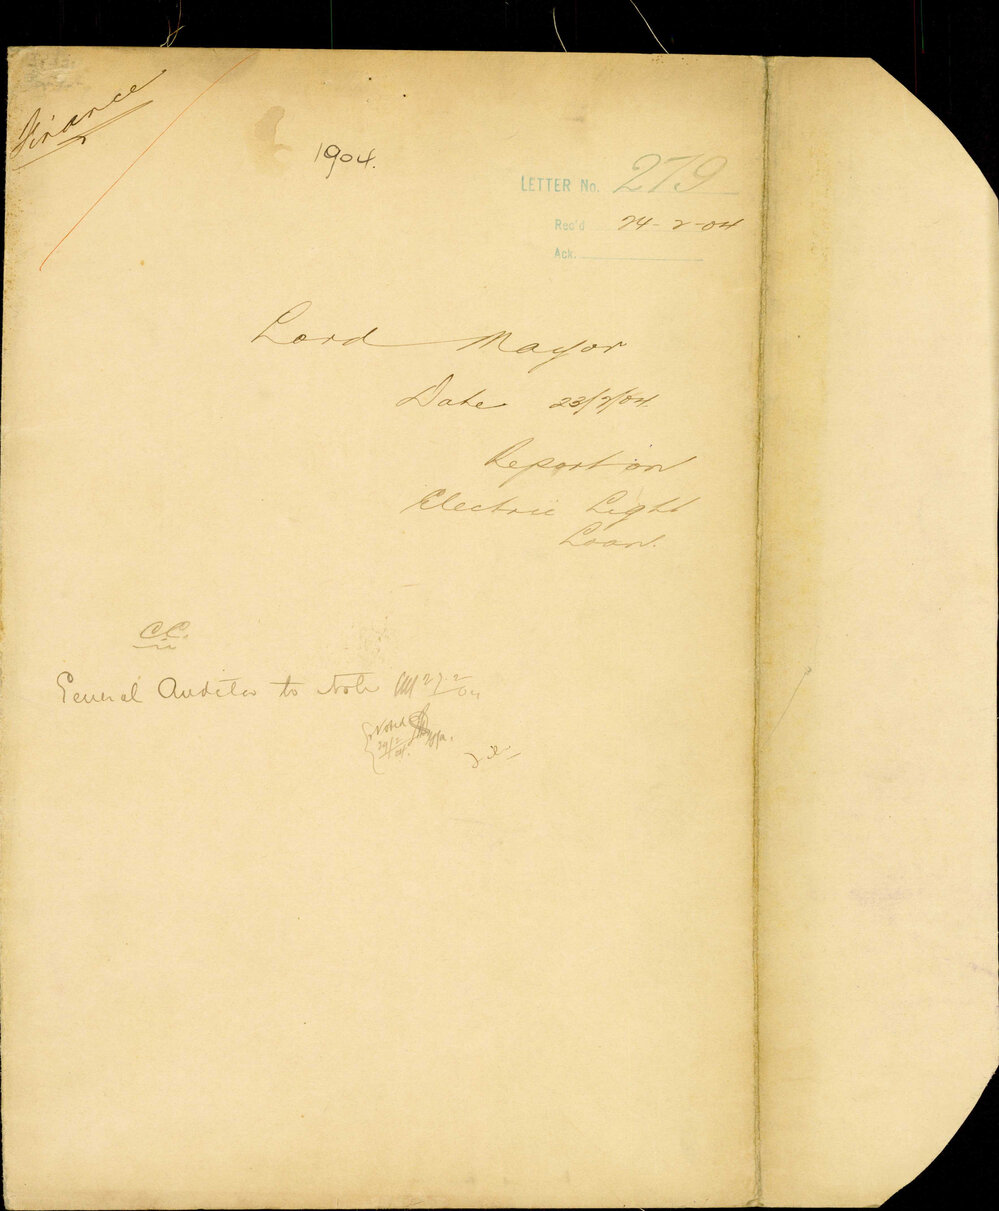 Finance
1904.
LETTER No. 279
Rec'd 24-2-04
Ack.
Lord Mayor
Date 23/2/04.
Report on
Electric Light
Loan.
C.C.
General Auditor to Note 27-2/04
Noted
29/2/04.